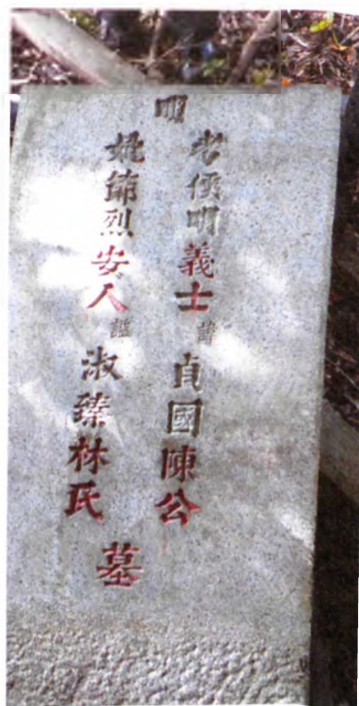 明
考明義士貞國陳公
妣節烈安人淑臻林氏
墓